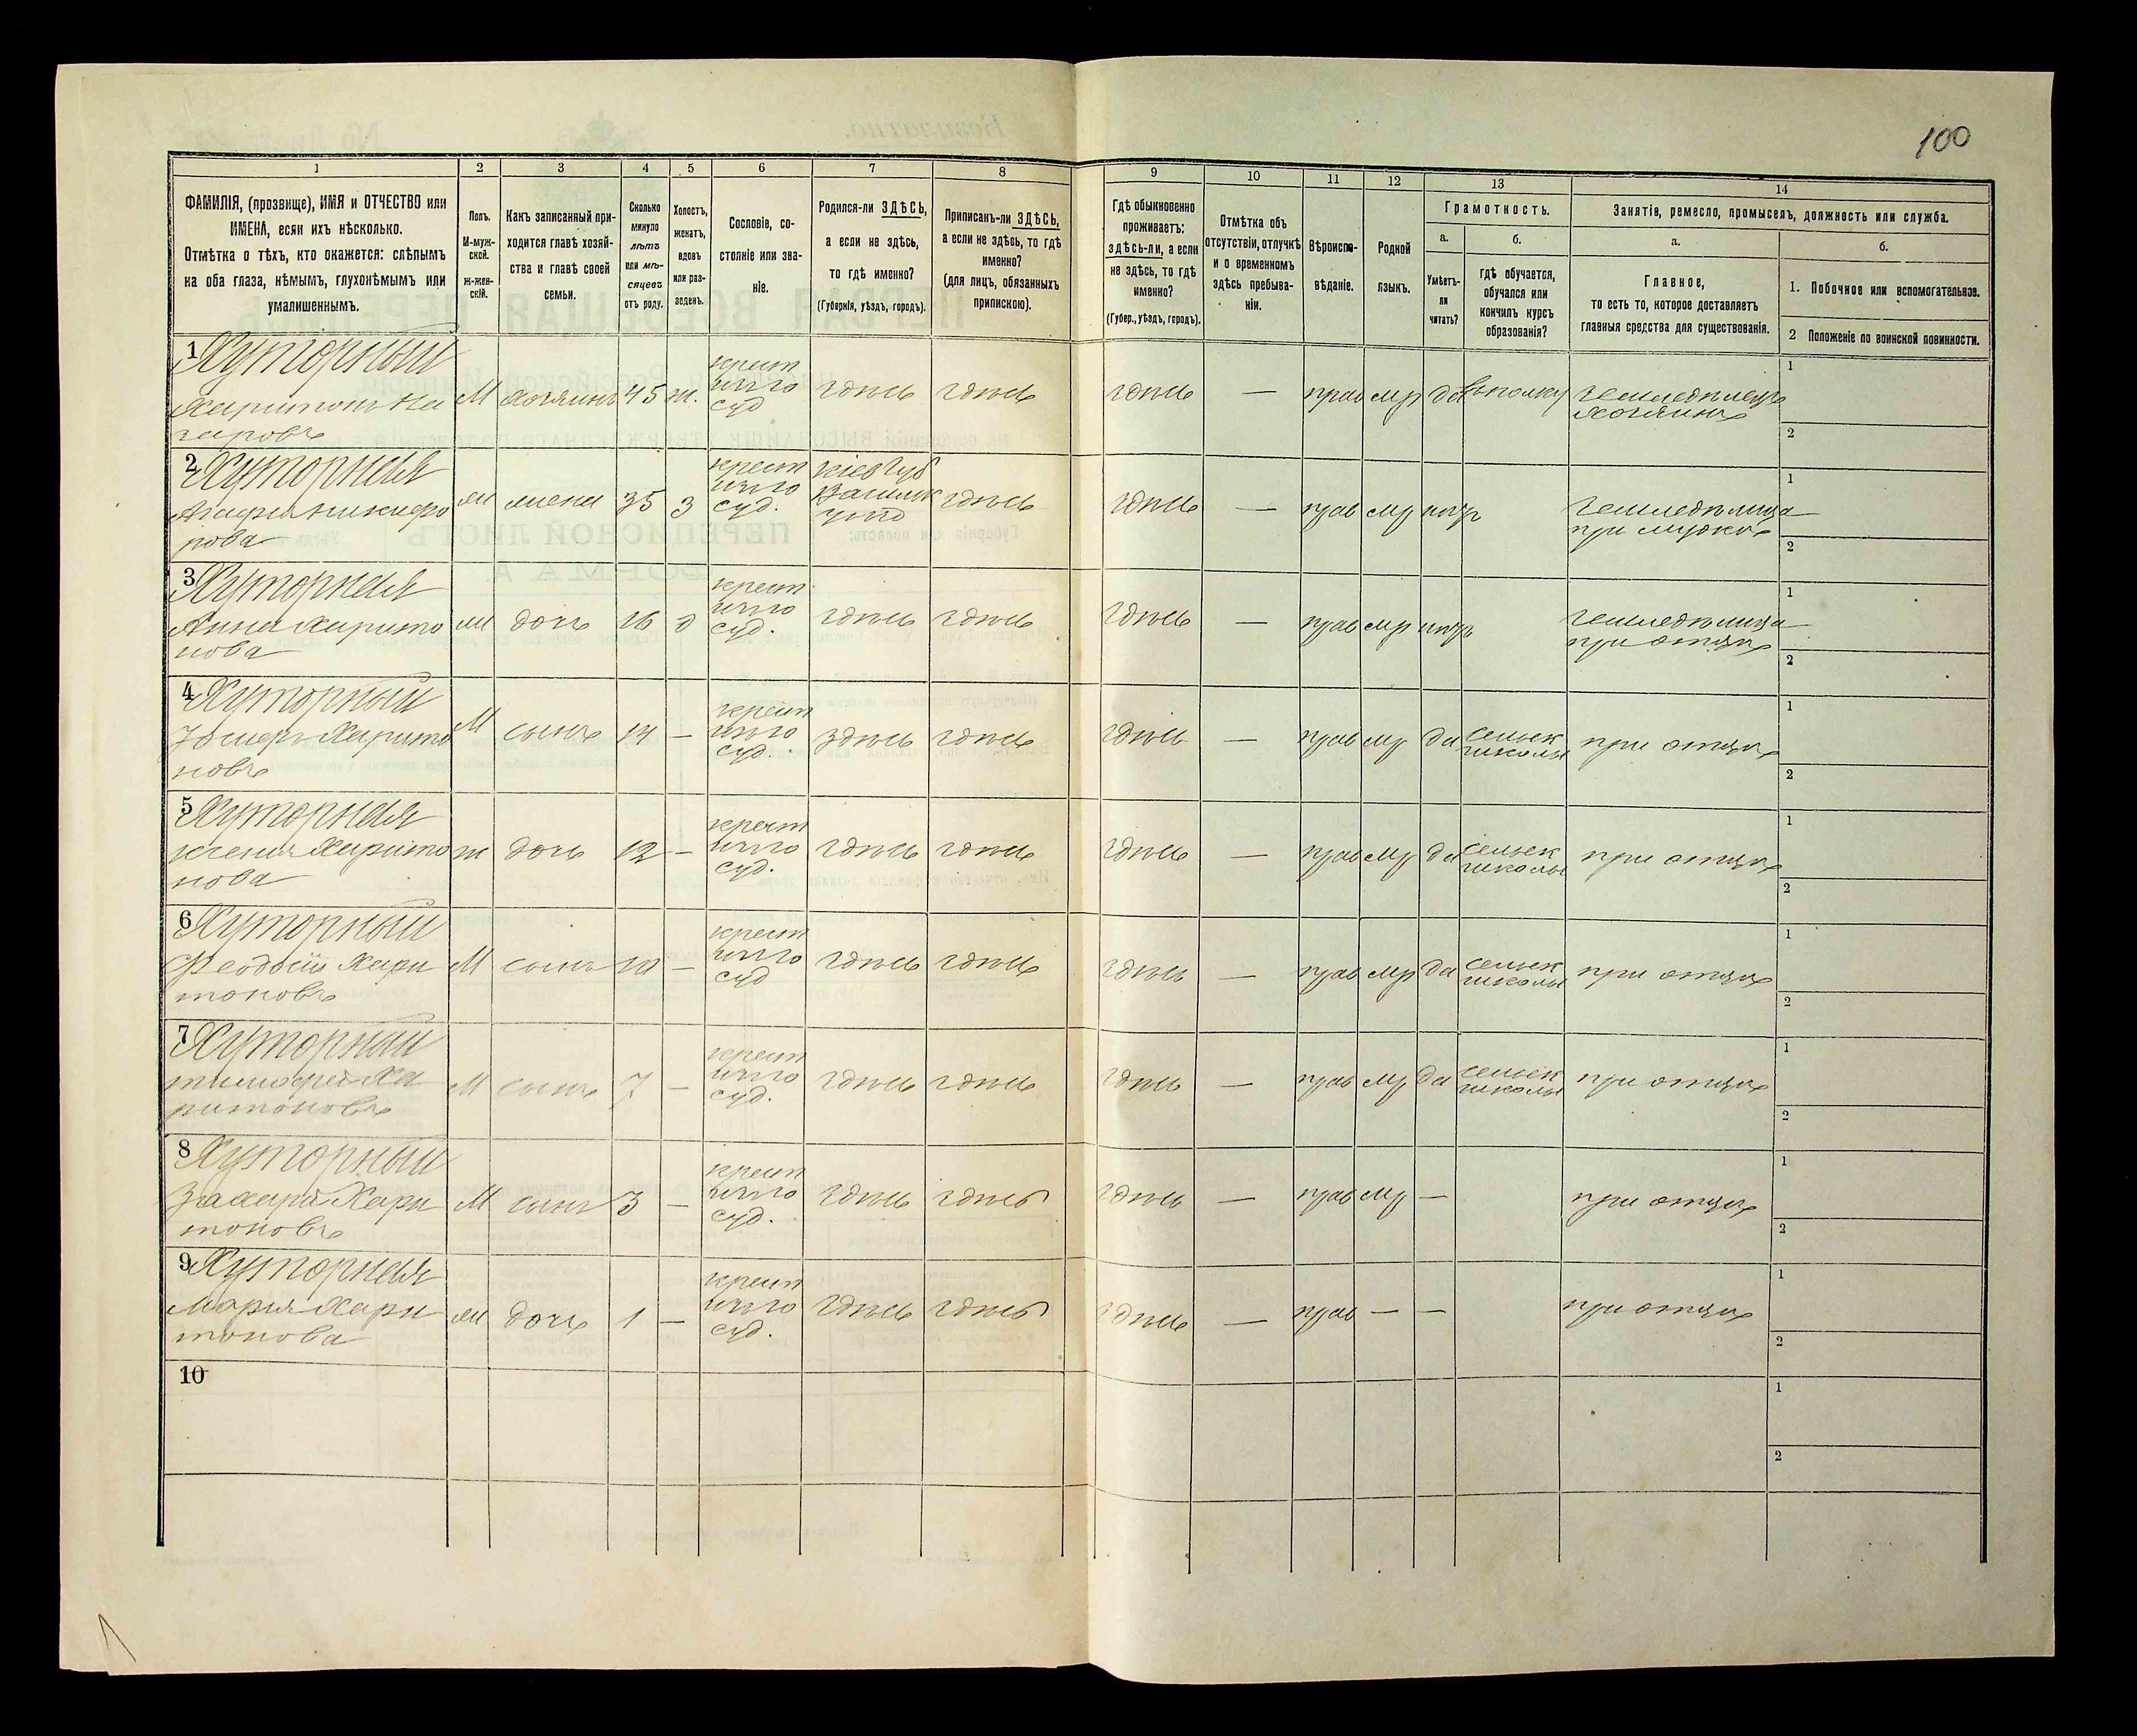 100
1 2 3 4 5 6 7 8 9 10 11 12 13 14
ФАМИЛІЯ, (прозвище), ИМЯ и ОТЧЕСТВО или
ИМЕНА, если ихъ нѣсколько.
Отмѣтка о тѣхъ, кто окажется: слѣпымъ
на оба глаза, нѣмымъ, глухонѣмымъ или
умалишеннымъ.
Полъ.
М-муж-
ской.
ж-жен-
скій.
Какъ записанный при-
ходится главѣ хозяй-
ства и главѣ своей
семьи.
Сколько
минуло
лѣтъ
или мѣ-
сяцевъ
отъ роду.
Холостъ,
женатъ,
вдовъ
или раз-
веденъ.
Сословіе, со-
стояніе или зва-
ніе.
Родился-ли ЗДѢСЬ,
а если не здѣсь,
то гдѣ именно?
(Губернія, уѣздъ, городъ).
Приписанъ-ли ЗДѢСЬ,
а если не здѣсь, то гдѣ
именно?
(для лицъ, обязанныхъ
припискою).
Гдѣ обыкновенно
проживаетъ:
здѣсь-ли, а если
не здѣсь, то гдѣ
именно?
(Губер., уѣздъ, городъ).
Отмѣтка объ
отсутствіи, отлучкѣ
и о временномъ
здѣсь пребыва-
ніи.
Вѣроиспо-
вѣданіе.
Родной
языкъ.
Грамотность.
а.
Умѣетъ-
ли
читать?
б.
гдѣ обучается,
обучался или
кончилъ курсъ
образованія?
Занятіе, ремесло, промыселъ, должность или служба.
а.
Главное,
то есть то, которое доставляетъ
главныя средства для существованія.
б.
1. Побочное или вспомогательное.
2 Положеніе по воинской повинности.
1 Хуторный
Харитонъ На
заровъ
М хозяинъ 45 ж.
крест
суд
здѣсь здѣсь здѣсь — прав мр да
земледѣлецъ
хозяинъ
1
2
2 Хуторная
Агафия Никифо
рова
ж жена 35 з
крест
суд.
Кіев губ
Васильк
уѣзд
здѣсь здѣсь — прав мр нѣтъ
земледѣлица
при мужѣ
1
2
3 Хуторная
Анна Харито
нова
ж дочь 16 д
крест
суд.
здѣсь здѣсь здѣсь — прав мр нѣтъ
земледѣлица
при отцѣ
1
2
4 Хуторный
Харито
новъ
М сынъ 14 —
крест
суд.
здѣсь здѣсь здѣсь — прав мр да
сельск
школы
при отцѣ
1
2
5 Хуторная
Ксения Харито
нова
ж дочь 12 —
крест
суд.
здѣсь здѣсь здѣсь — прав мр да
сельск
школы
при отцѣ
1
2
6 Хуторный
Феодосій Хари
тоновъ
М сынъ 10 —
крест
суд
здѣсь здѣсь здѣсь — прав мр да
сельск
школы
при отцѣ
1
2
7 Хуторный
Тимофей Ха
ритоновъ
М сынъ 7 —
крест
суд.
здѣсь здѣсь здѣсь — прав мр да
сельск
школы
при отцѣ
1
2
8 Хуторный
Захарій Хари
тоновъ
М сынъ 3 —
крест
суд.
здѣсь здѣсь здѣсь — прав мр —
при отцѣ
1
2
9 Хуторная
Мария Хари
тонова
ж дочь 1 —
крест
суд.
здѣсь здѣсь здѣсь — прав — —
при отцѣ
1
2
10
1
2